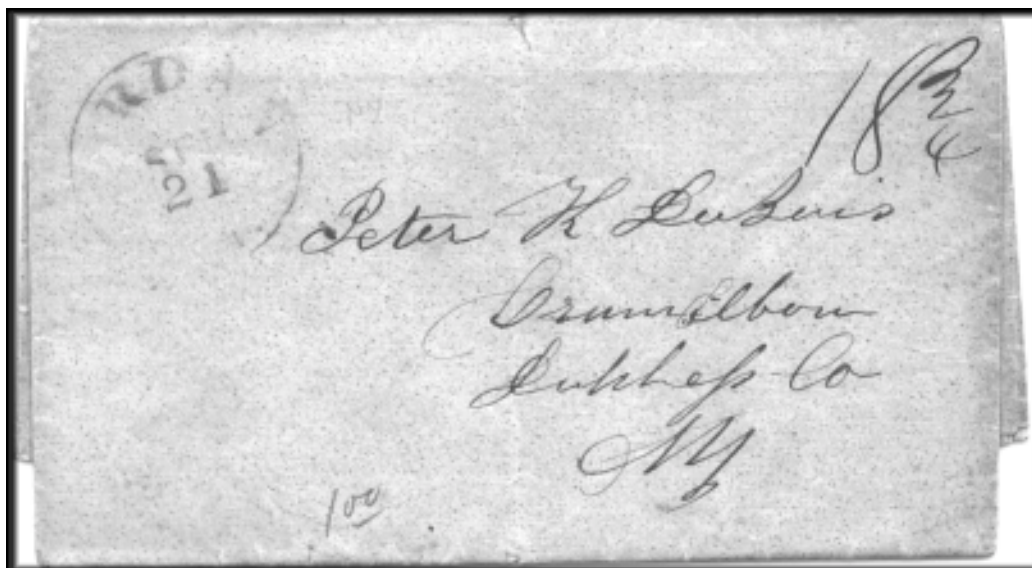 18 3/4
21
Peter K DuBois
Crum Elbow
Dutchess Co
NY
1 00